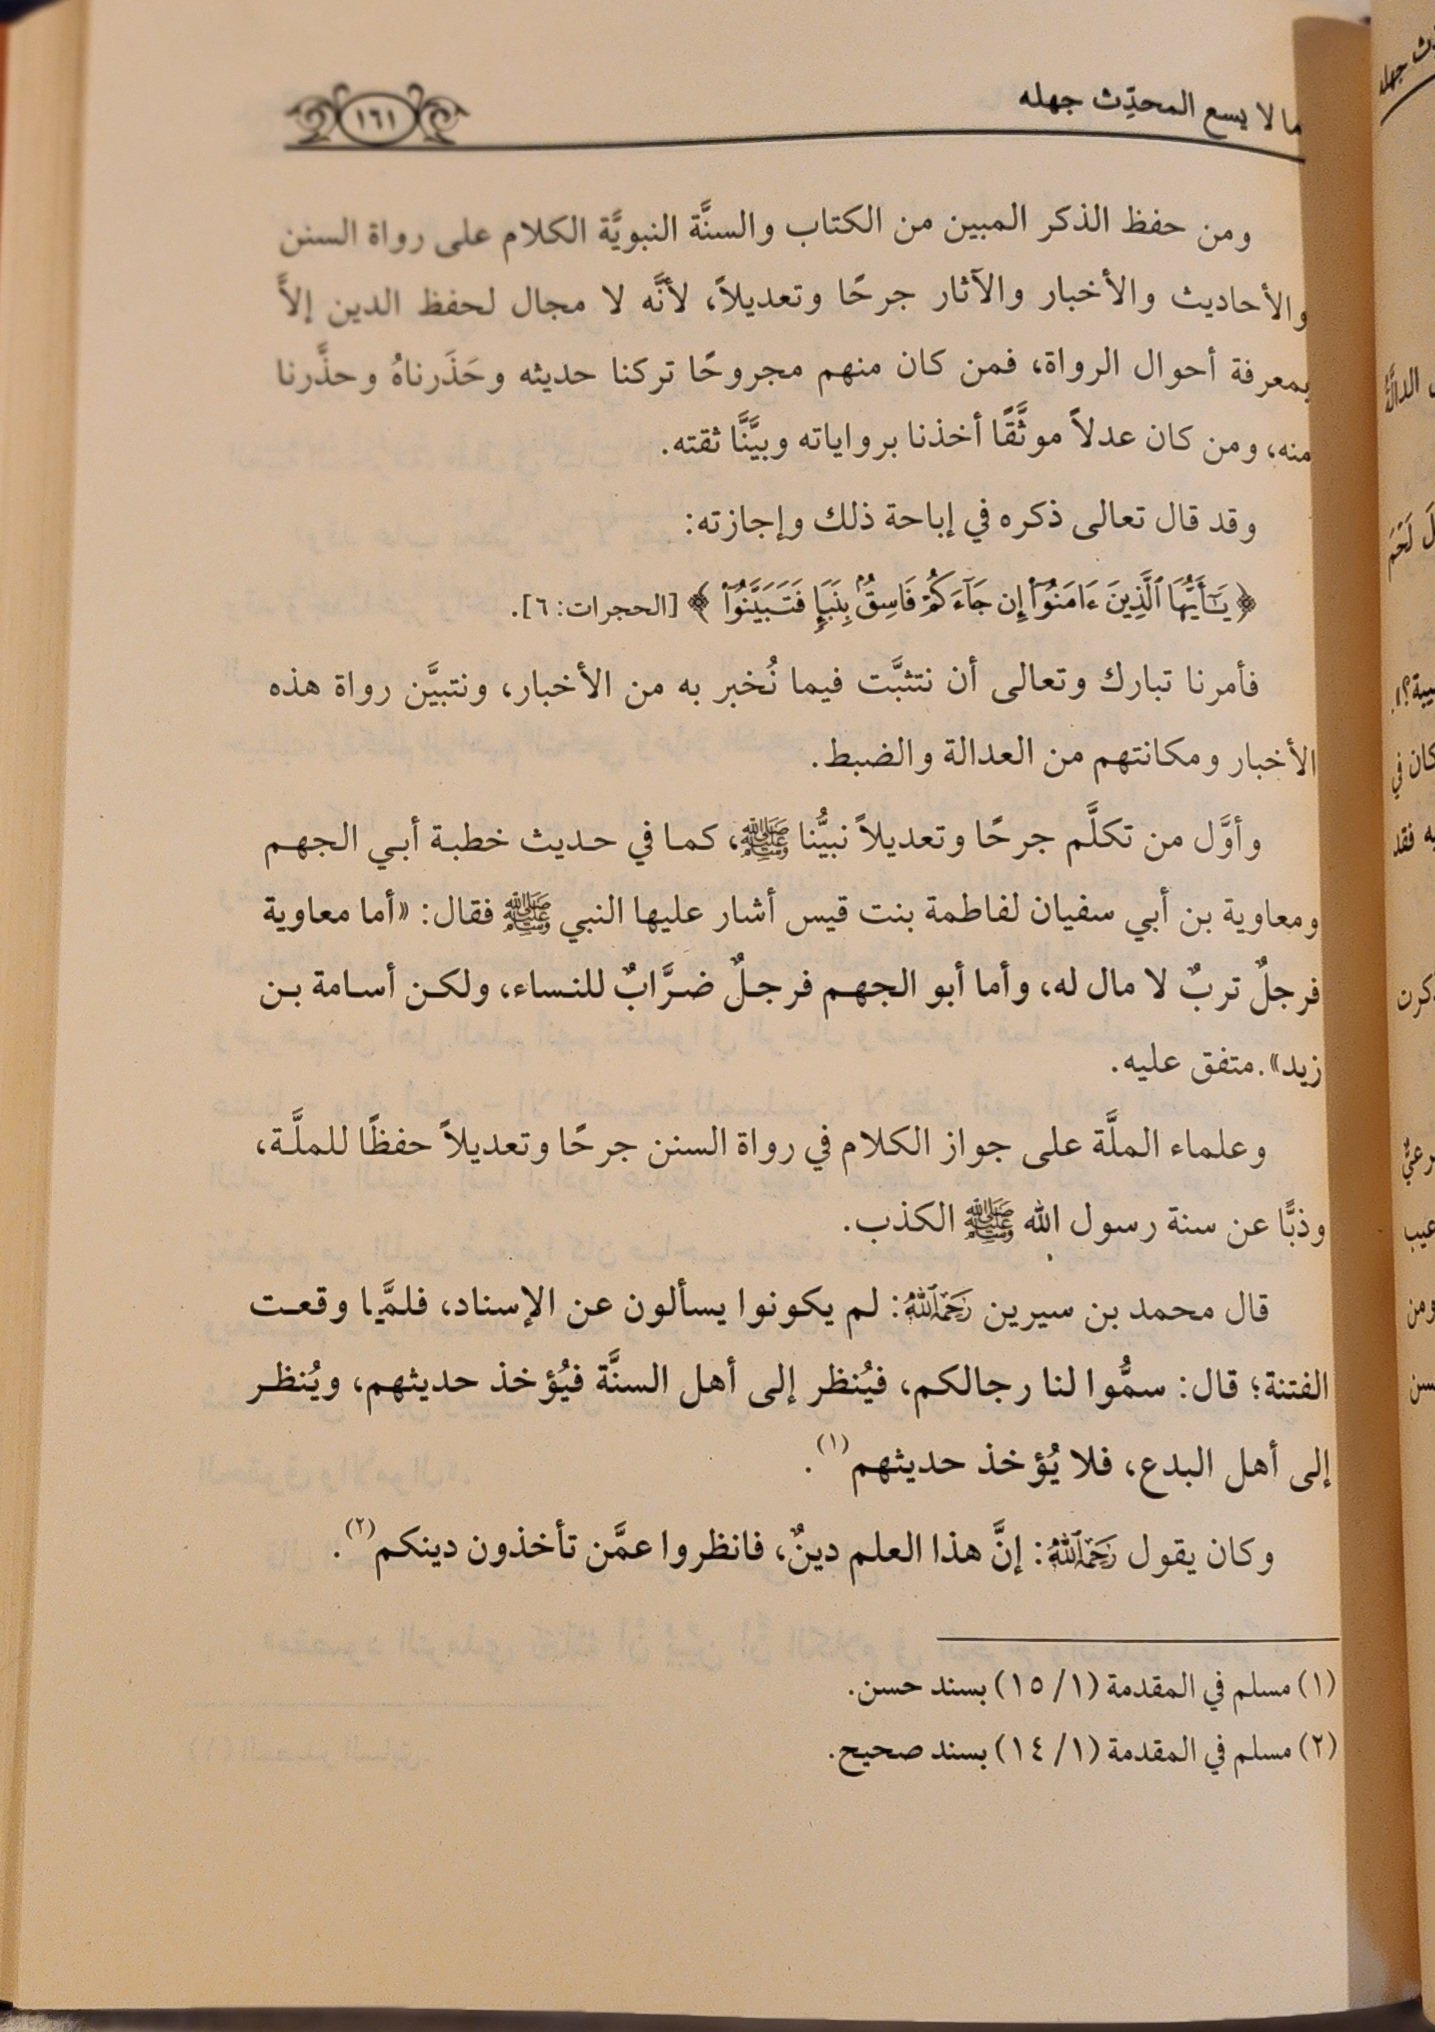 ما لا يسع المحدِّث جهله
١٦١
ومن حفظ الذكر المبين من الكتاب والسنَّة النبويَّة الكلام على رواة السنن
والأحاديث والأخبار والآثار جرحًا وتعديلاً، لأنَّه لا مجال لحفظ الدين إلاَّ
بمعرفة أحوال الرواة، فمن كان منهم مجروحًا تركنا حديثه وحَذَرناهُ وحذَّرنا
منه، ومن كان عدلاً موثَّقًا أخذنا برواياته وبيَّنَّا ثقته.
وقد قال تعالى ذكره في إباحة ذلك وإجازته:
﴿يَـٰٓأَيُّهَا ٱلَّذِينَ ءَامَنُوٓا۟ إِن جَآءَكُمْ فَاسِقٌۢ بِنَبَإٍ فَتَبَيَّنُوٓا۟﴾ [الحجرات: ٦].
فأمرنا تبارك وتعالى أن نتثبَّت فيما نُخبر به من الأخبار، ونتبيَّن رواة هذه
الأخبار ومكانتهم من العدالة والضبط.
وأوَّل من تكلَّم جرحًا وتعديلاً نبيُّنا ﷺ، كما في حديث خطبة أبي الجهم
ومعاوية بن أبي سفيان لفاطمة بنت قيس أشار عليها النبي ﷺ فقال: «أما معاوية
فرجلٌ تربٌ لا مال له، وأما أبو الجهم فرجلٌ ضرَّابٌ للنساء، ولكن أسامة بن
زيد».متفق عليه.
وعلماء الملَّة على جواز الكلام في رواة السنن جرحًا وتعديلاً حفظًا للملَّة،
وذبًّا عن سنة رسول الله ﷺ الكذب.
قال محمد بن سيرين رَحِمَهُ ٱللَّهُ: لم يكونوا يسألون عن الإسناد، فلمَّا وقعت
الفتنة؛ قال: سمُّوا لنا رجالكم، فيُنظر إلى أهل السنَّة فيُؤخذ حديثهم، ويُنظر
إلى أهل البدع، فلا يُؤخذ حديثهم(١).
وكان يقول رَحِمَهُ ٱللَّهُ: إنَّ هذا العلم دينٌ، فانظروا عمَّن تأخذون دينكم(٢).
(١) مسلم في المقدمة (١/ ١٥) بسند حسن.
(٢) مسلم في المقدمة (١/ ١٤) بسند صحيح.